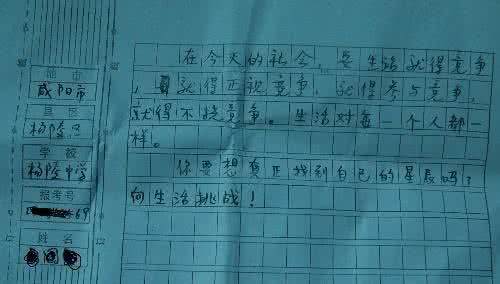 在今天的社会，是生活就得竞争
，就得正视竞争，就得参与竞争，
就得不挠竞争。生活对每一个人都一
样。
你要想真正找到自己的星辰吗？
向生活挑战！
咸阳市
县区
杨陵区
学校
杨陵中学
报考号
69
姓名